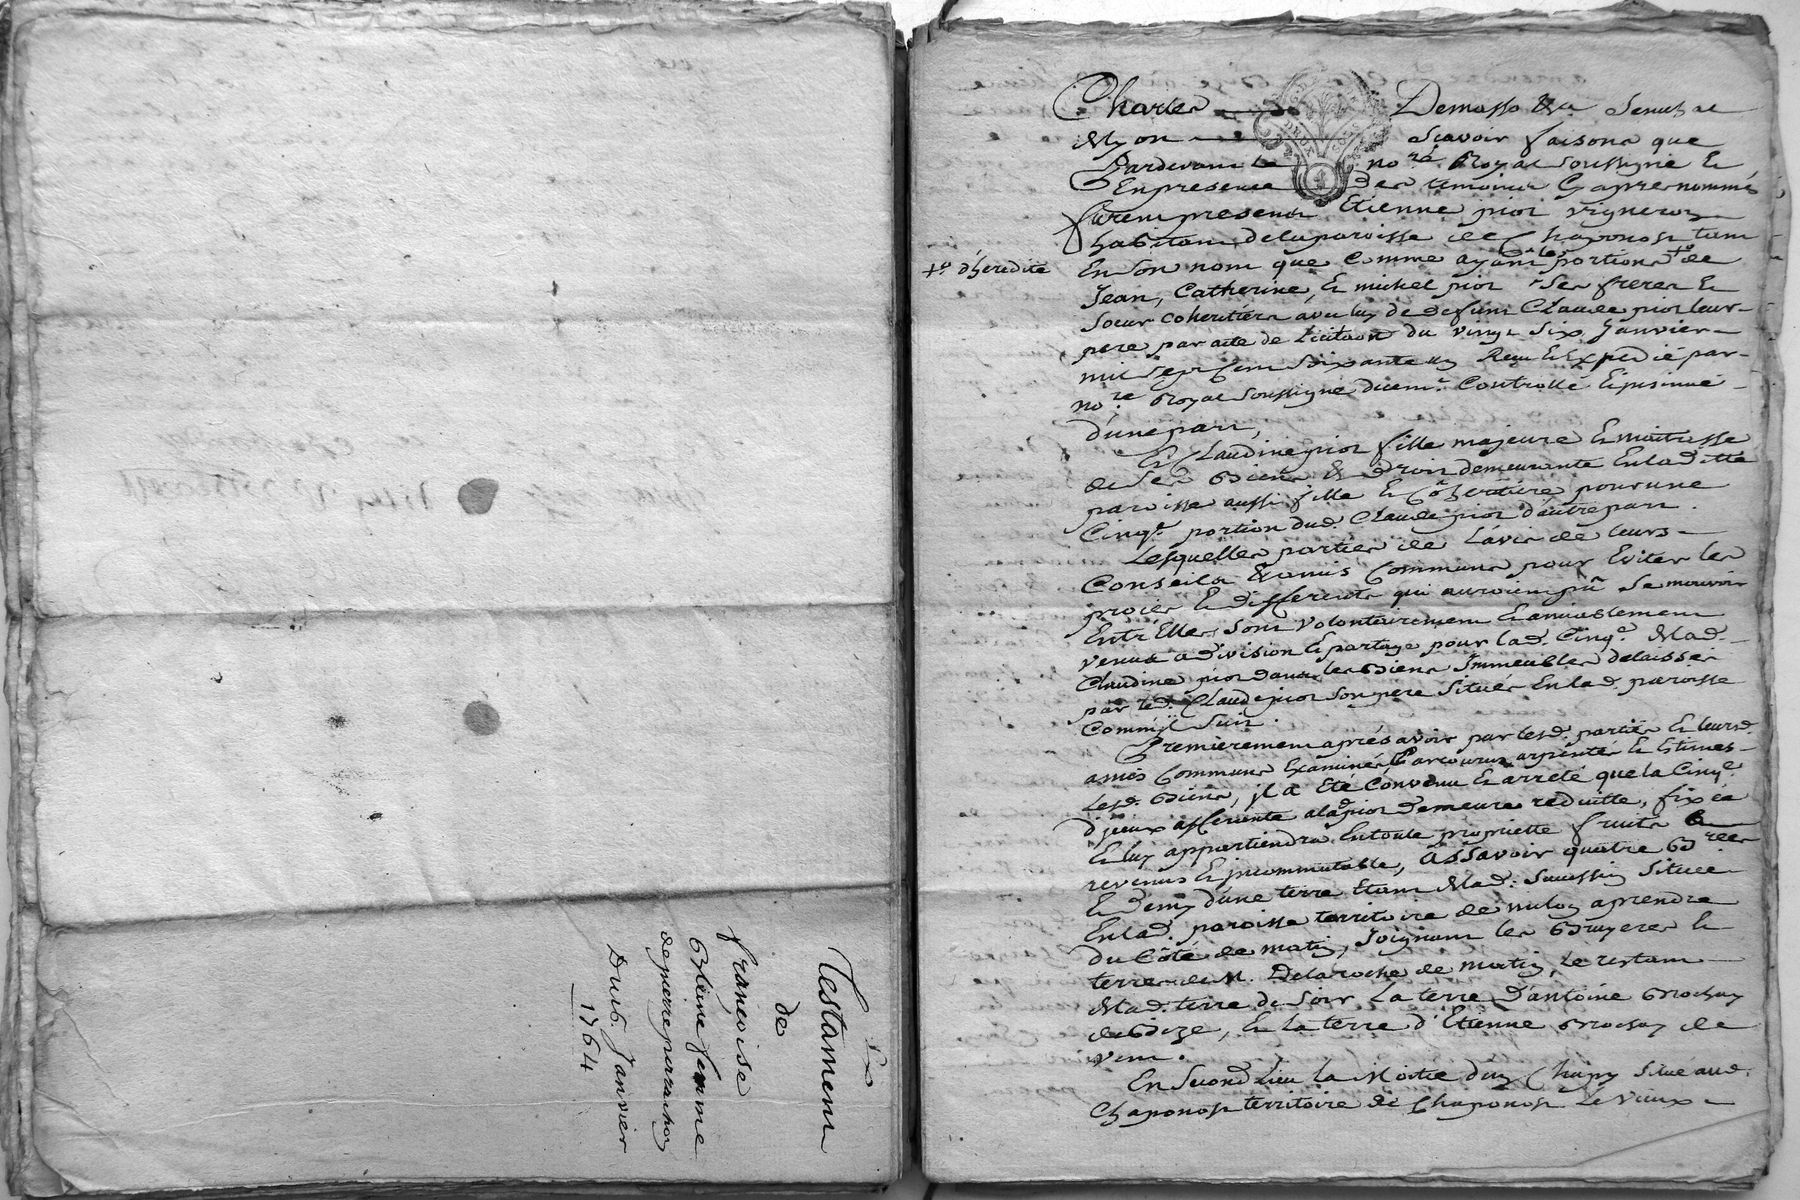 Testament
de
françoise
Bleine femme
de pierre perrachon
Du 16. Janvier
1764
Charles Demasso &a. Senechal
de Lyon Scavoir faisons que
Pardevant le no.re Royal soussigné Et
En presence des temoins Cy apres nommés
furent presents Etienne pior vigneron
habitant de la paroisse de Chaponost tant
+o d'heredité
En Son nom que Comme ayant les portions +o de
Jean, Catherine, Et michel pior Ses freres Et
Soeur coheritiers avec luy de defunt Claude pior leur
pere par acte de du vingt Six Janvier
mil Sept Cent Soixante un Reçu Et Expedié par
no.re Royal Soussigné Controllé Et insinué
d'une part,
Et Claudine pior fille majeure Et maitresse
de Ses Biens & droits demeurante En laditte
paroisse aussi fille Et Coheritiere pour une
Cinq.e portion dud. Claude pior d'autre part.
Lesquelles parties de L'avis de leurs
Conseils & amis Communs pour Eviter les
procés Et differents qui auroient pû Se mouvoir
Entr'Elles, Sont volontairement Et amiablement
venus a division Et partage pour lad. Cinq.e de lad.
Claudine pior dans les Biens Immeubles delaissés
par led. Claude pior Son pere Situés En lad. paroisse
Comm'jl Suit.
Premierement aprés avoir par lesd. parties Et leursd.
amis Communs Examinés Parcourus arpentés Et Estimés
lesd. Biens, jl a Eté Convenu Et arreté que la Cinq.e
d'jceux afferente a lad. pior demeure reduitte, fixée
Et luy appartiendra En toute propriette fruits &
revenus Et jncommutable, àsSavoir quatre B.rées
Et demy d'une terre Etant de lad. Située
En lad. paroisse territoire de a prendre
du Côté de matin, Joignant les Bruyeres Et
terres de M. Delaroche de matin, le restant
de lad. terre de Soir La terre D'antoine Brochay
de Bize, Et la terre d'Etienne Brochay de
vent.
En Second Lieu la Moitié d'un Champ Situé aud.
Chaponost territoire de Chaponost Le vieux